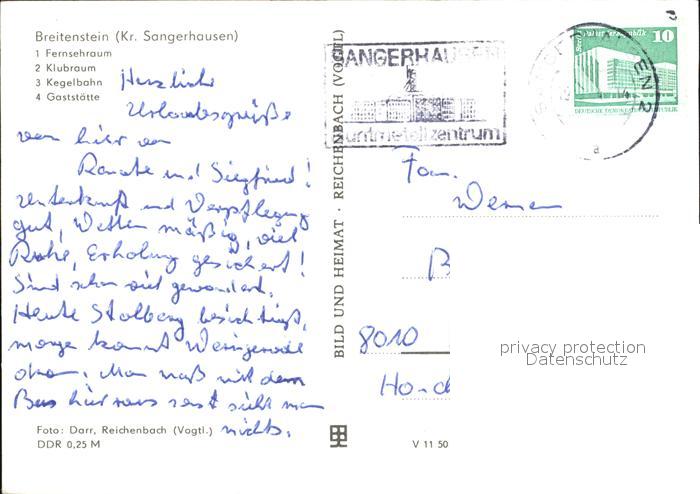 Breitenstein (Kr. Sangerhausen)
1 Fernsehraum
2 Klubraum
3 Kegelbahn
4 Gaststätte
Herzliche
Urlaubsgrüße
von hier von
Renate und Siegfried!
Unterkunft und Verpflegung
gut, Wetter mäßig, viel
Ruhe, Erholung gesichert!
Sind schon viel gewandert.
Heute Stolberg besichtigt,
morgen kommt Wernigerode
dran. Man muß mit dem
Bus hier raus sonst sieht man
nichts.
Foto: Darr, Reichenbach (Vogtl.)
DDR 0,25 M
BILD UND HEIMAT · REICHENBACH (VOGTL)
V 11 50
SANGERHAUSEN
Buntmetallzentrum
10
DEUTSCHE DEMOKRATISCHE REPUBLIK
2
a
Fam.
Werner
B
8010
privacy protection
Datenschutz